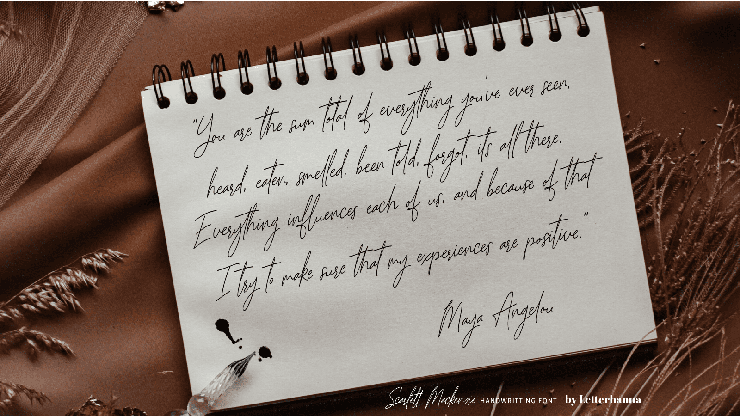 "You are the sum total of everything you've ever seen,
heard, eaten, smelled, been told, forgot, it's all there.
Everything influences each of us, and because of that
I try to make sure that my experiences are positive."
Maya Angelou
Scarlett Mackenzie HANDWRITTING FONT by letterhanna